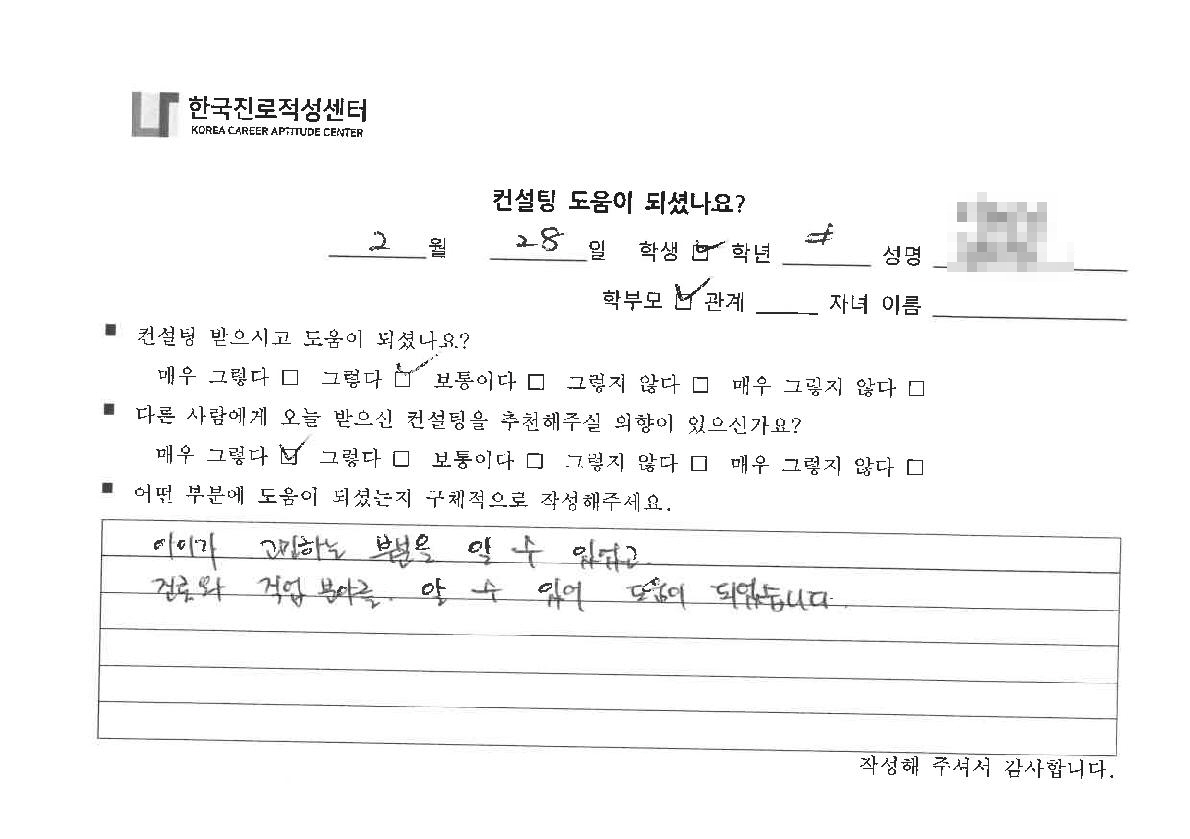 한국진로적성센터
KOREA CAREER APTITUDE CENTER
컨설팅 도움이 되셨나요?
2 월 28 일 학생 ☑ 학년 성명
학부모 ☑ 관계 자녀 이름
■ 컨설팅 받으시고 도움이 되셨나요?
매우 그렇다 □ 그렇다 ☑ 보통이다 □ 그렇지 않다 □ 매우 그렇지 않다 □
■ 다른 사람에게 오늘 받으신 컨설팅을 추천해주실 의향이 있으신가요?
매우 그렇다 ☑ 그렇다 □ 보통이다 □ 그렇지 않다 □ 매우 그렇지 않다 □
■ 어떤 부분에 도움이 되셨는지 구체적으로 작성해주세요.
아이가 고민하는 부분을 알 수 있었고
진로와 직업 분야를. 알 수 있어 도움이 되었습니다.
작성해 주셔서 감사합니다.